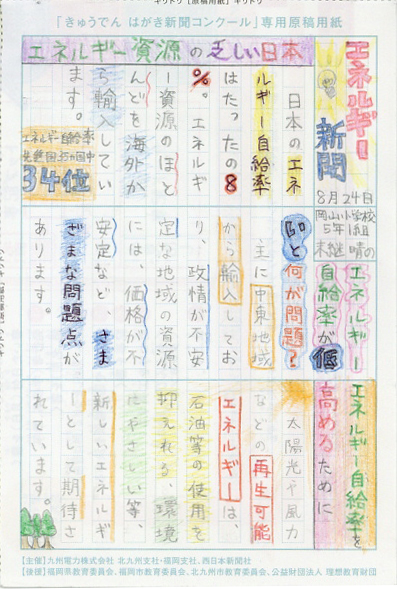 「きゅうでん はがき新聞コンクール」専用原稿用紙
エネルギー新聞
8月24日
岡山小学校
5年1組
末継 晴の
エネルギー資源の乏しい日本
日本のエネ
ルギー自給率
はたったの8
%。エネルギ
ー資源のほと
んどを海外か
ら輸入してい
ます。
エネルギー自給率
先進国35か国中
34位
エネルギー
自給率が低
いと何が問題?
主に中東地域
から輸入してお
り、政情が不安
定な地域の資源
には、価格が不
安定など、さま
ざまな問題点が
あります。
エネルギー自給率を
高めるために
太陽光や風力
などの再生可能
エネルギーは、
石油等の使用を
抑えれる、環境
にやさしい等、
新しいエネルギ
ーとして期待さ
れています。
【主催】九州電力株式会社 北九州支社・福岡支社、西日本新聞社
【後援】福岡県教育委員会、福岡市教育委員会、北九州市教育委員会、公益財団法人 理想教育財団